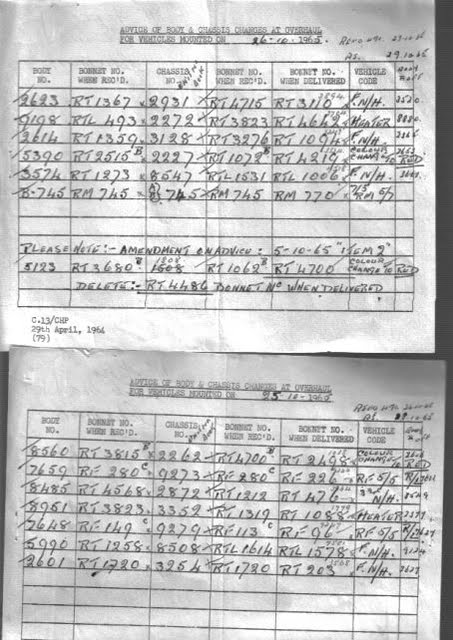 ADVICE OF BODY & CHASSIS CHANGES AT OVERHAUL
FOR VEHICLES MOUNTED ON 26-10-1965
29.10.65
BODY NO. BONNET NO. WHEN REC'D. CHASSIS NO. BONNET NO. WHEN REC'D. BONNET NO. WHEN DELIVERED VEHICLE CODE
2623 RT1367 2931 RT4715 RT3110 F.N/H.
9198 RTL 493 2272 RT3823 RT4642 HEATER
2614 RT1359 3128 RT3276 RT1094 F.N/H.
5390 RT2515 B 2227 RT1072 B RT4219 COLOUR CHANGE TO RED
3574 RT1273 8547 RTL1531 RTL1006 F.N/H.
B.745 RM 745 745 RM745 RM 770 RM 5/7
PLEASE NOTE:- AMENDMENT ON ADVICE: 5-10-65 "ITEM 2"
5123 RT3680 B 1808 RT1062 B RT4700 COLOUR CHANGE TO RED
DELETE:- RT4486 BONNET No WHEN DELIVERED
C.13/CHP
29th April, 1964
(79)
ADVICE OF BODY & CHASSIS CHANGES AT OVERHAUL
FOR VEHICLES MOUNTED ON 25-10-1965
BODY NO. BONNET NO. WHEN REC'D. CHASSIS NO. BONNET NO. WHEN REC'D. BONNET NO. WHEN DELIVERED VEHICLE CODE
8560 RT3815 B 2262 RT4700 B RT2498 COLOUR CHANGE TO RED
7659 RF 280 C 9273 RF 280 C RF 226 RF5/5
8485 RT4568 2872 RT1212 RT476 N/H.
8951 RT3823 3352 RT1319 RT1088 HEATER
7648 RF149 C 9279 RF113 C RF96 RF5/5
5990 RT1258 8508 RTL1614 RTL1578 F.N/H.
2601 RT1720 3254 RT1720 RT203 F.N/H.